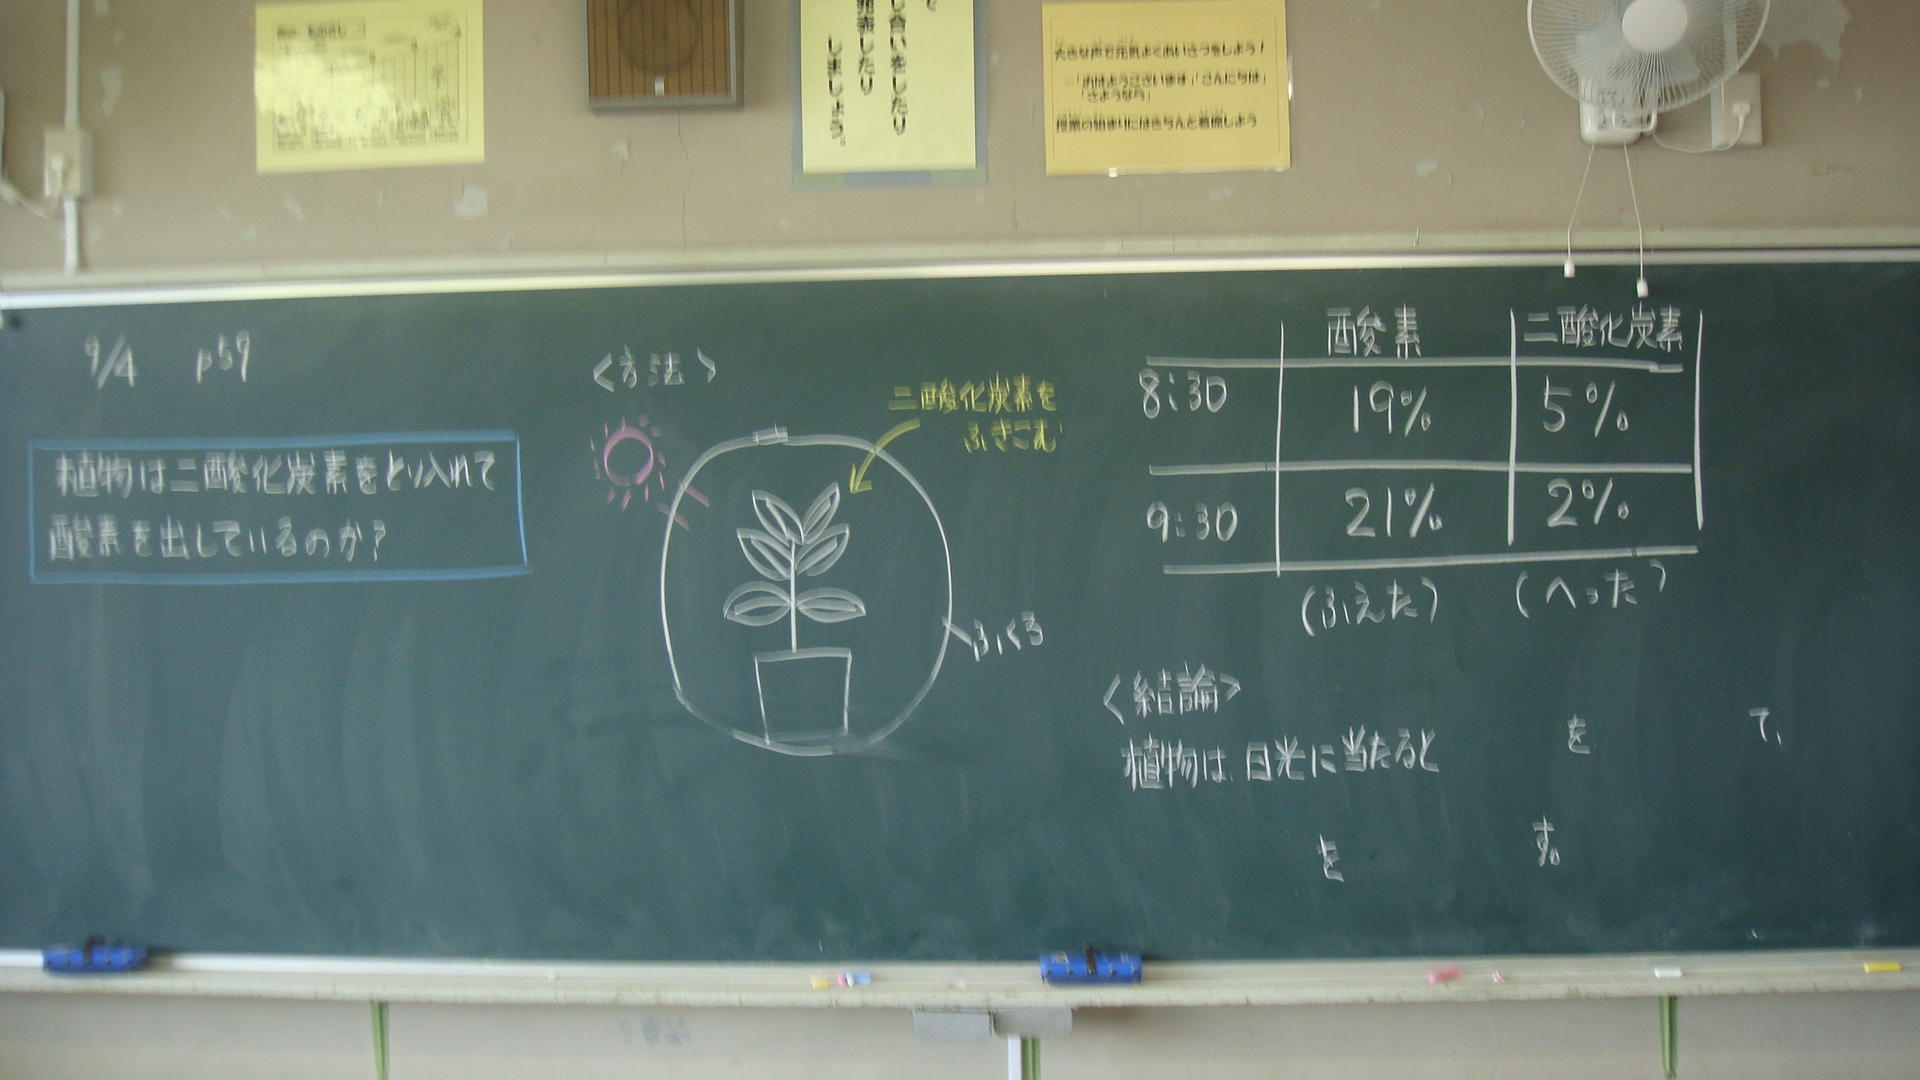 しましょう。
大きな声で元気よくあいさつをしよう!
―「おはようございます」「こんにちは」
「さようなら」
授業の始まりにはきちんと着席しよう
9/4 p59
植物は二酸化炭素をとり入れて
酸素を出しているのか?
<方法>
二酸化炭素を
ふきこむ
ふくろ
酸素 二酸化炭素
8:30 19% 5%
9:30 21% 2%
(ふえた) (へった)
<結論>
植物は、日光に当たると を て、
を す。